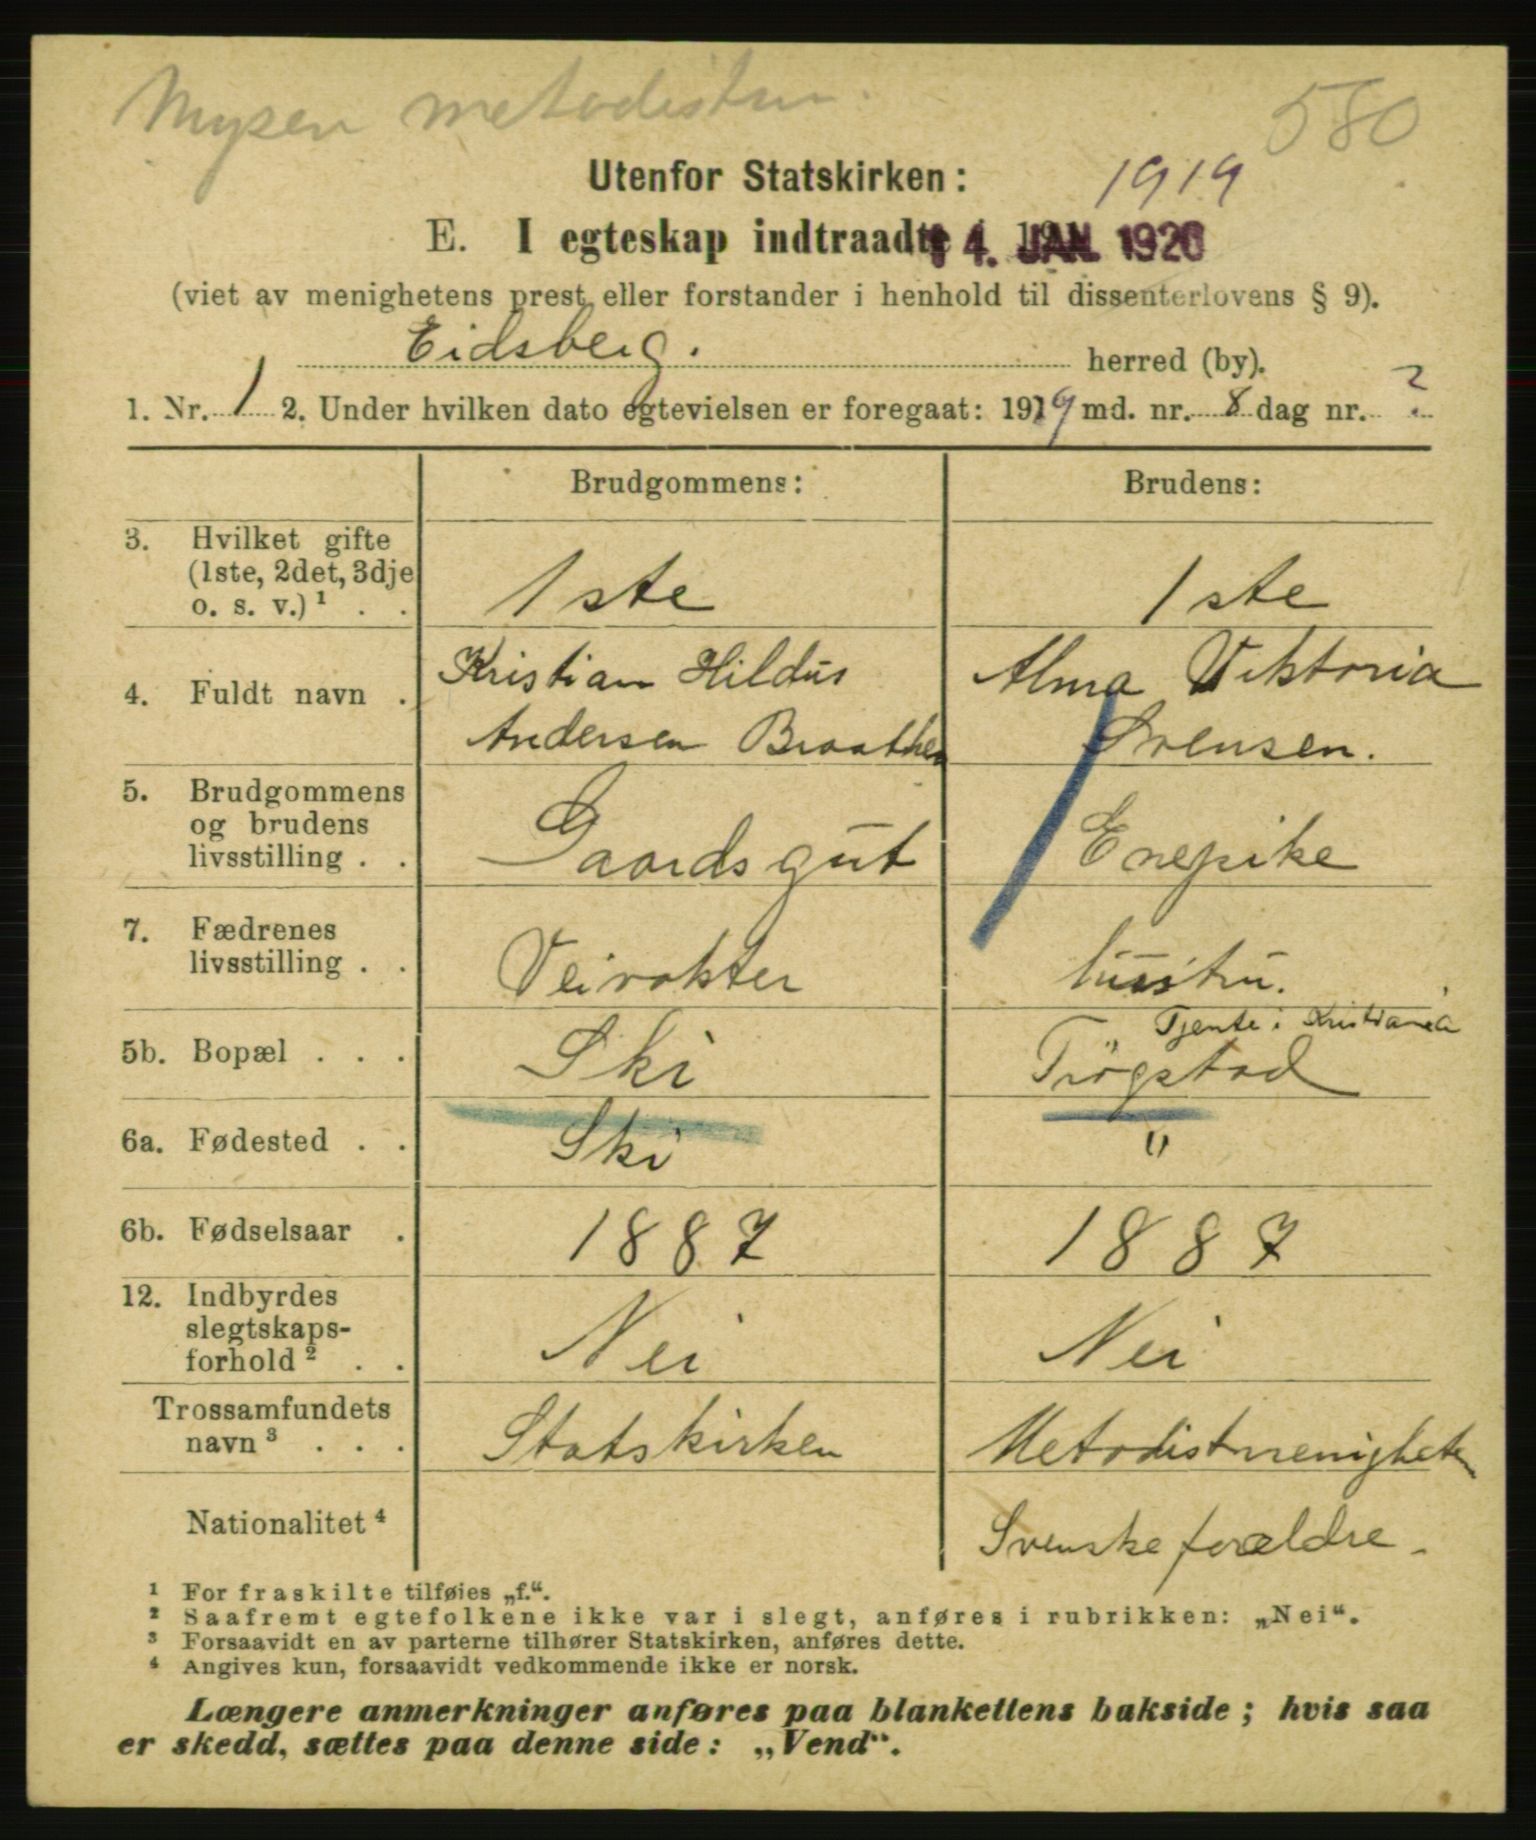 Mysen metodistm.
580
Utenfor Statskirken:
1919
E. I egteskap indtraadte 14. JAN. 1920
(viet av menighetens prest eller forstander i henhold til dissenterlovens § 9).
Eidsberg. herred (by).
1. Nr. 1 2. Under hvilken dato egtevielsen er foregaat: 1919 md. nr. 8 dag nr. ?
Brudgommens: Brudens:
3. Hvilket gifte
(1ste, 2det, 3dje
o. s. v.) ¹ . . 1ste 1ste
Kristian Hildus Alma Viktoria
4. Fuldt navn .
Andersen Braathen Svensen.
5. Brudgommens
og brudens
livsstilling . . Gaardsgut Enepike
7. Fædrenes
livsstilling . . Veivokter
Tjente i Kristiania
5b. Bopæl . . . Ski Trögstad
6a. Fødested . . Ski "
6b. Fødselsaar . 1887 1887
12. Indbyrdes
slegtskaps-
forhold ² . . Nei Nei
Trossamfundets
navn ³ . . . Statskirken Metodistmenigheten
Nationalitet ⁴ Svenske forældre.
¹ For fraskilte tilføies „f.“.
² Saafremt egtefolkene ikke var i slegt, anføres i rubrikken: „Nei“.
³ Forsaavidt en av parterne tilhører Statskirken, anføres dette.
⁴ Angives kun, forsaavidt vedkommende ikke er norsk.
Længere anmerkninger anføres paa blankettens bakside; hvis saa
er skedd, sættes paa denne side: „Vend“.